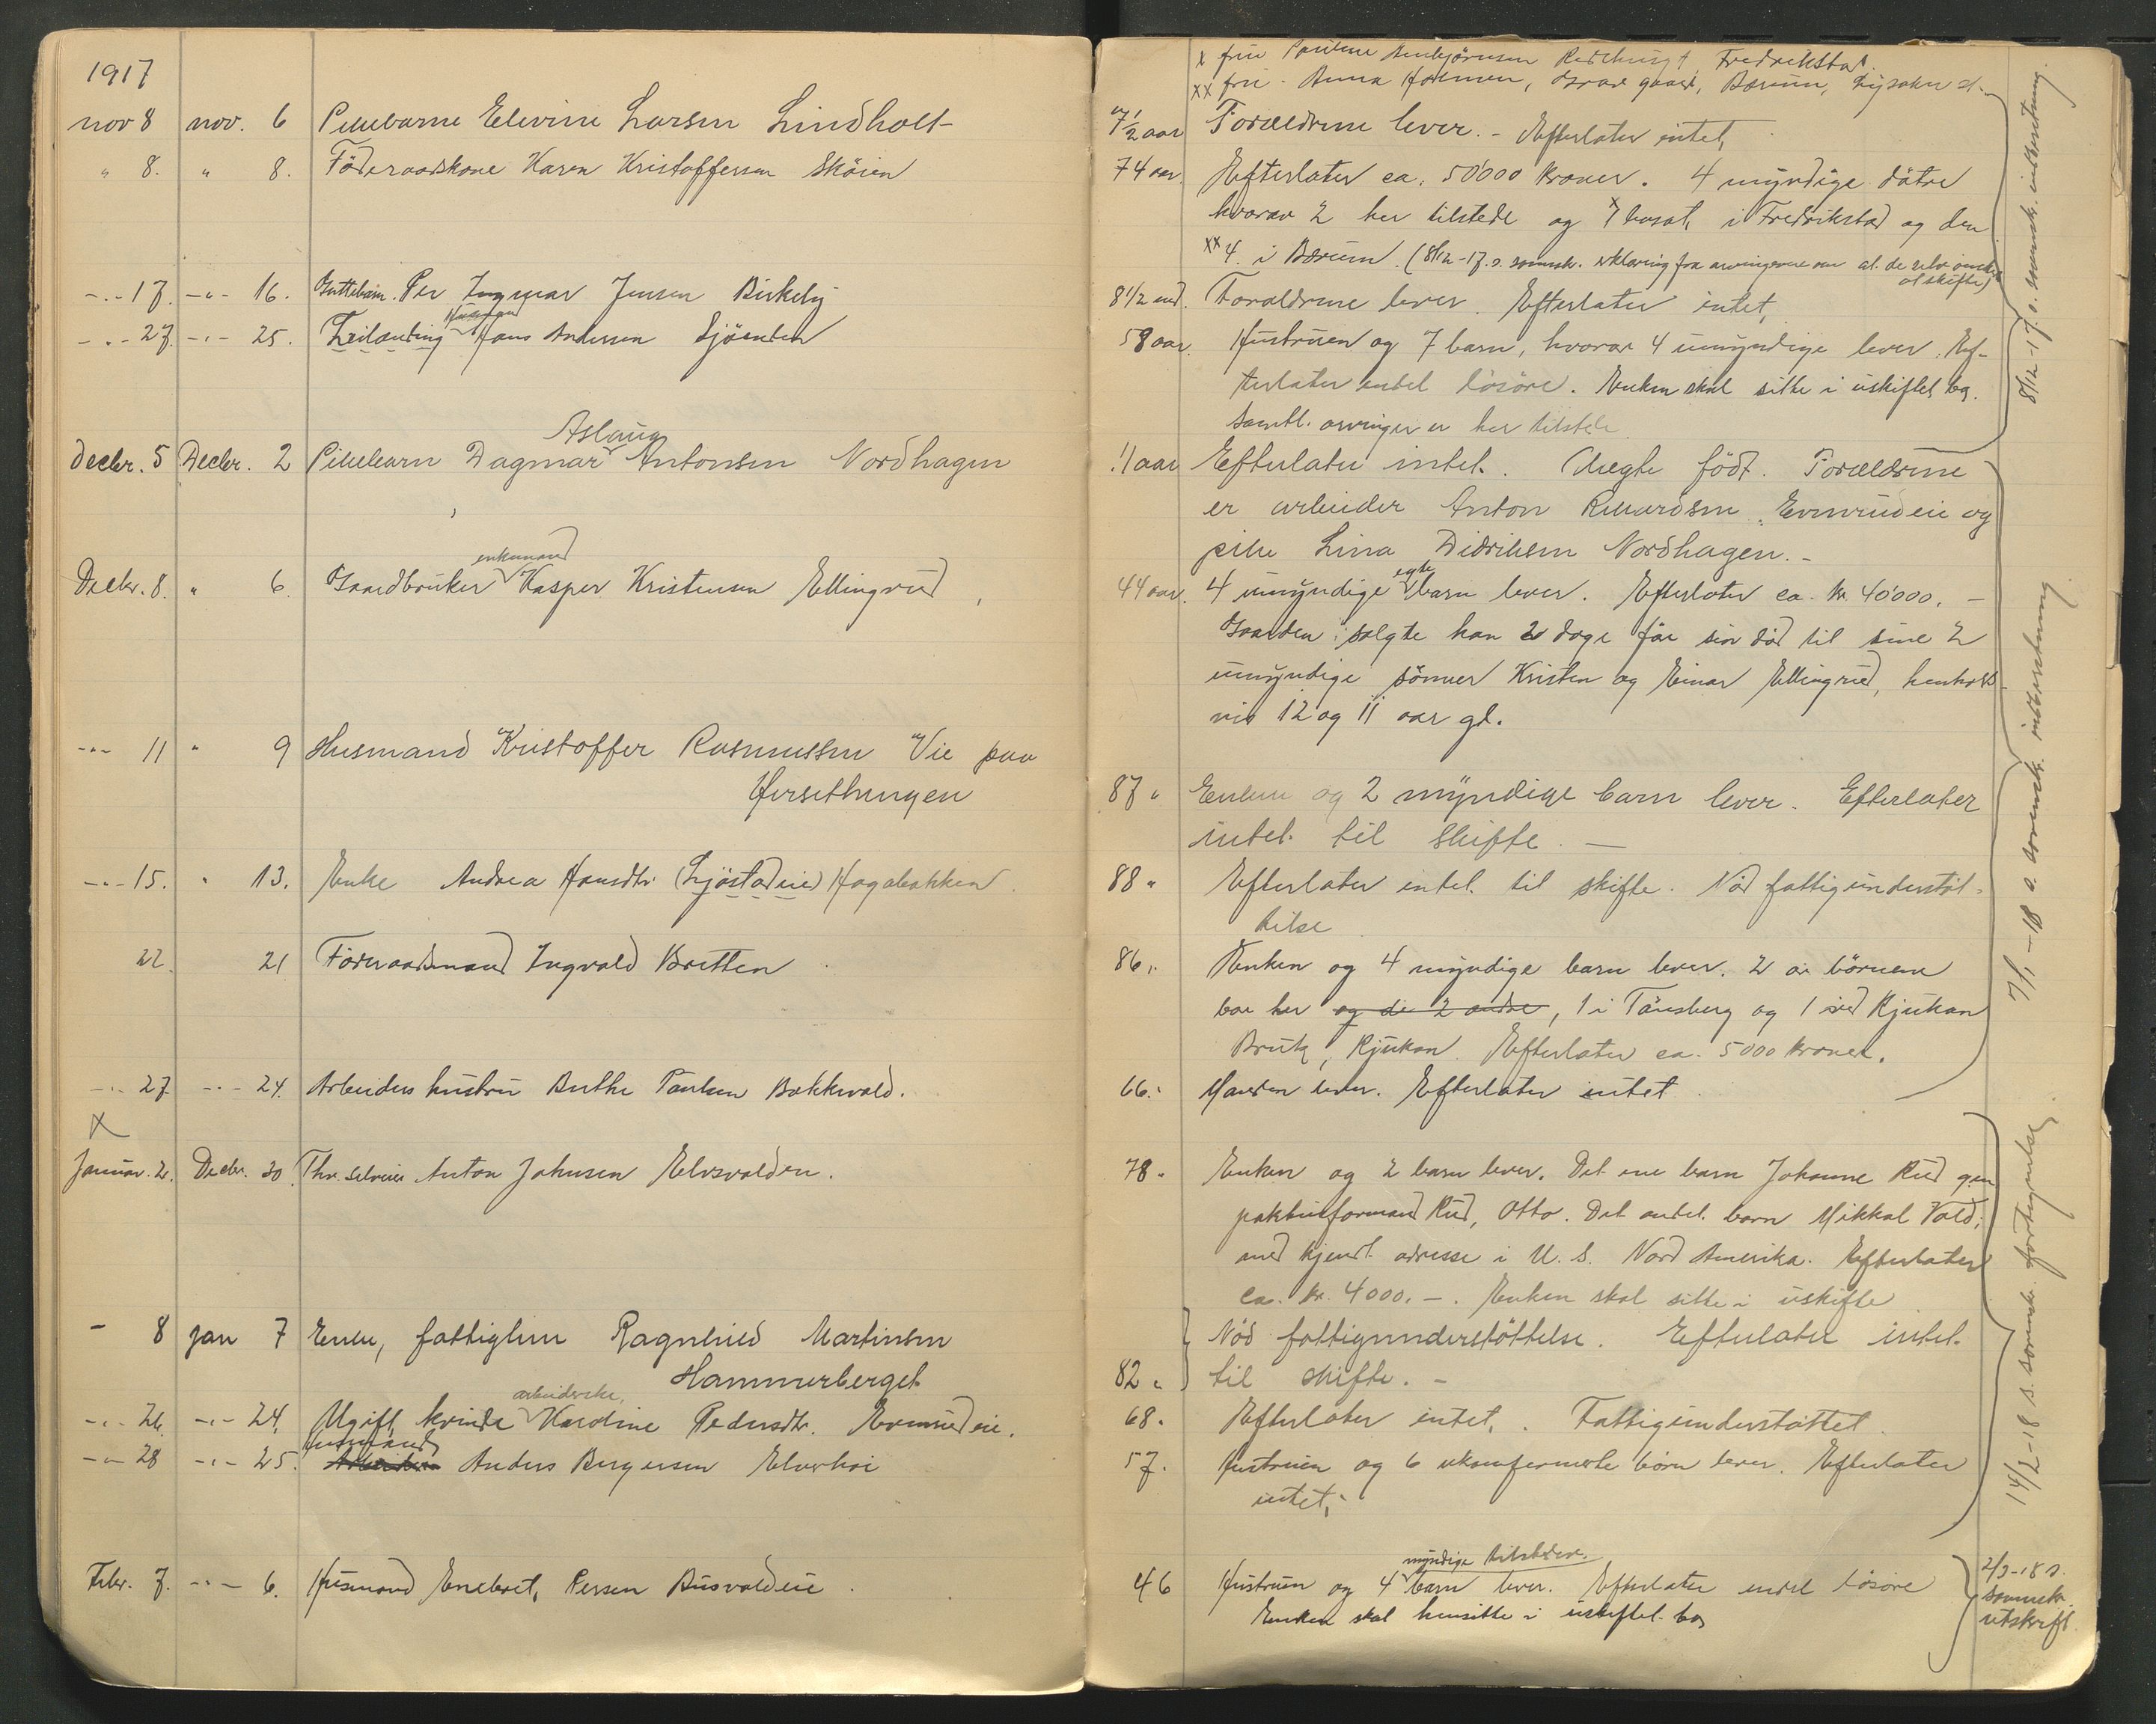 1917
nov 8 nov. 6 Pikebarne Elevine Larsen Lindholt
" 8. " 8. Föderaadskone Karen Kristoffersen Sköien
-"- 17. -"- 16. Guttebarn Per Ingmar Jensen Birkely
husmand
-"- 27. -"- 25. Leilænding Hans Andersen
Aslaug
Decbr. 5 Decbr. 2 Pikebarn Dagmar Antonsen Nordhagen
enkemand
Decbr. 8. " 6. Gaardbruker Kasper Kristensen Ellingsrud
-"- 11 " 9 Husmand Kristoffer Rasmussen Vie paa
Hersethengen
-"- 15. " 13. Enke Andrea Hansdtr. (Ljöstadeie) Hagabakken.
22. 21 Föderaadsmand Ingvald Bratten
-"- 27 -"- 24. Arbeiders hustru Berthe Paulsen Bækkevold.
x
Januar. 2. Decbr. 30. Fhv. Anton Johnsen Elvsvolden.
- 8 jan 7 Enke, fattiglem Ragnhild Martinsen
Hammerberget
arbeiderske,
-"- 26. -"- 24. Ugift kvinde Karoline Pedersdtr. Evenrudeie.
husmand
-"- 28 -"- 25. Anders Bergersen Elverhøi
Febr. 7. -"- 6. Husmand Enebret Persen Busvoldeie
x fru Pauline Fredrikstad.
xx fru Anna gaard, Bærum, Lysaker st.
7 1/2 aar Forældrene lever. - Efterlater intet,
74 aar. Efterlater ca. 50000 kroner. 4 myndige døtre
hvorav 2 her tilstede og x 1 bosat i Fredrikstad og den
xx 4. i Bærum. (8/12-17 s. sorensk. erklæring fra arvingerne om at de selv ønsker
at skifte)
8 1/2 md. Forældrene lever. Efterlater intet,
58 aar. Hustruen og 7 barn, hvorav 4 umyndige lever. Ef-
terlater endel løsøre. Enken skal sitte i uskiftet bo.
Samtl. arvinger er her tilstede
11 aar Efterlater intet. Uegte født. Forældrene
er arbeider Anton Rikardsen Evenrudeie og
pike Lina Didriksen Nordhagen. -
egte
44 aar. 4 umyndige barn lever. Efterlater ca. kr. 40000. -
Gaarden solgte han 2 dage før sin død til sine 2
umyndige sønner Kristen og Einar Ellingsrud, henholds-
vis 12 og 11 aar gl.
87 " Enken og 2 myndige barn lever. Efterlater
intet til skifte. -
88 " Efterlater intet til skifte. Nød fattigunderstøt-
telse
86 " Enken og 4 myndige barn lever. 2 av børnene
bor her og de 2 andre, 1 i Tønsberg og 1 ved Rjukan
Bruk, Rjukan. Efterlater ca. 5000 kroner.
66. " Manden lever. Efterlater intet.
78 " Enken og 2 barn lever. Det ene barn Johanne Rud gm
formand Rud, Otta. Det andet barn Mikkal Vold,
med kjendt adresse i U. S. Nord Amerika. Efterlater
ca. kr. 4000. -. Enken skal sitte i uskifte
Nød fattigunderstøttelse. Efterlater intet
82 " til skifte. -
68 " Efterlater intet. Fattigunderstøttet
57. " Hustruen og 6 ukonfirmerte børn lever. Efterlater
intet, -
myndige tilstede.
46 Hustruen og 4 barn lever. Efterlater endel løsøre
Enken skal hensitte i uskiftet bo
8/12-17 s. sorensk. indberetning.
7/1-18 s. sorensk. indberetning
14/2-18 s. sorensk. fortegnelse
2/3-18 s.
sorenskr.
utskrift